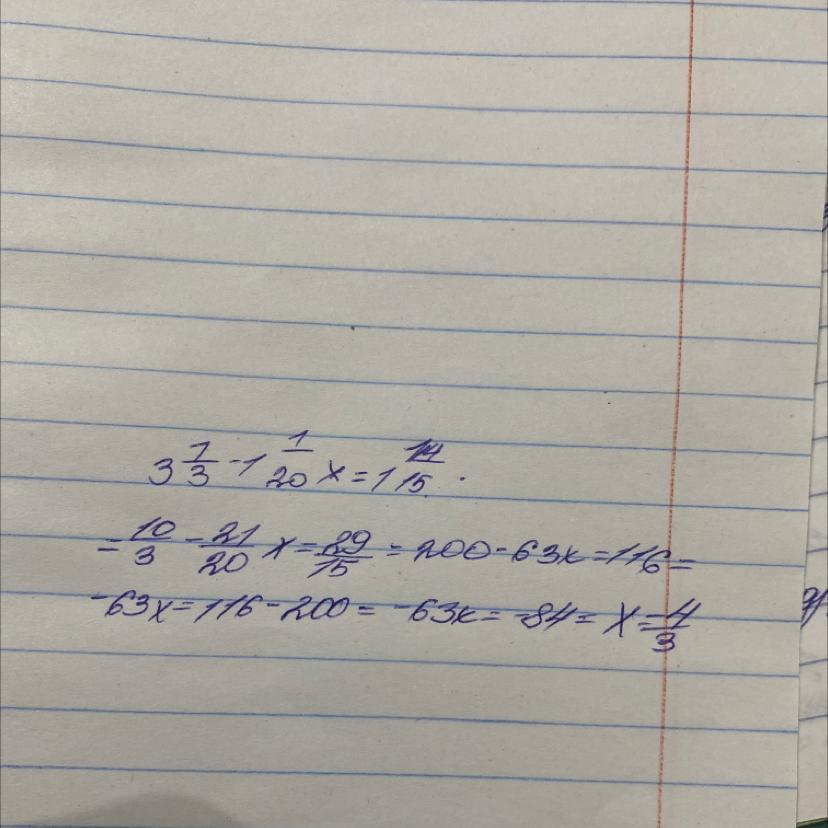 3 1/3 - 1 1/20 x = 1 14/15 .
= 10/3 - 21/20 x = 29/15 = 200 - 63x = 116 =
-63x = 116 - 200 = -63x = -84 = x = 4/3